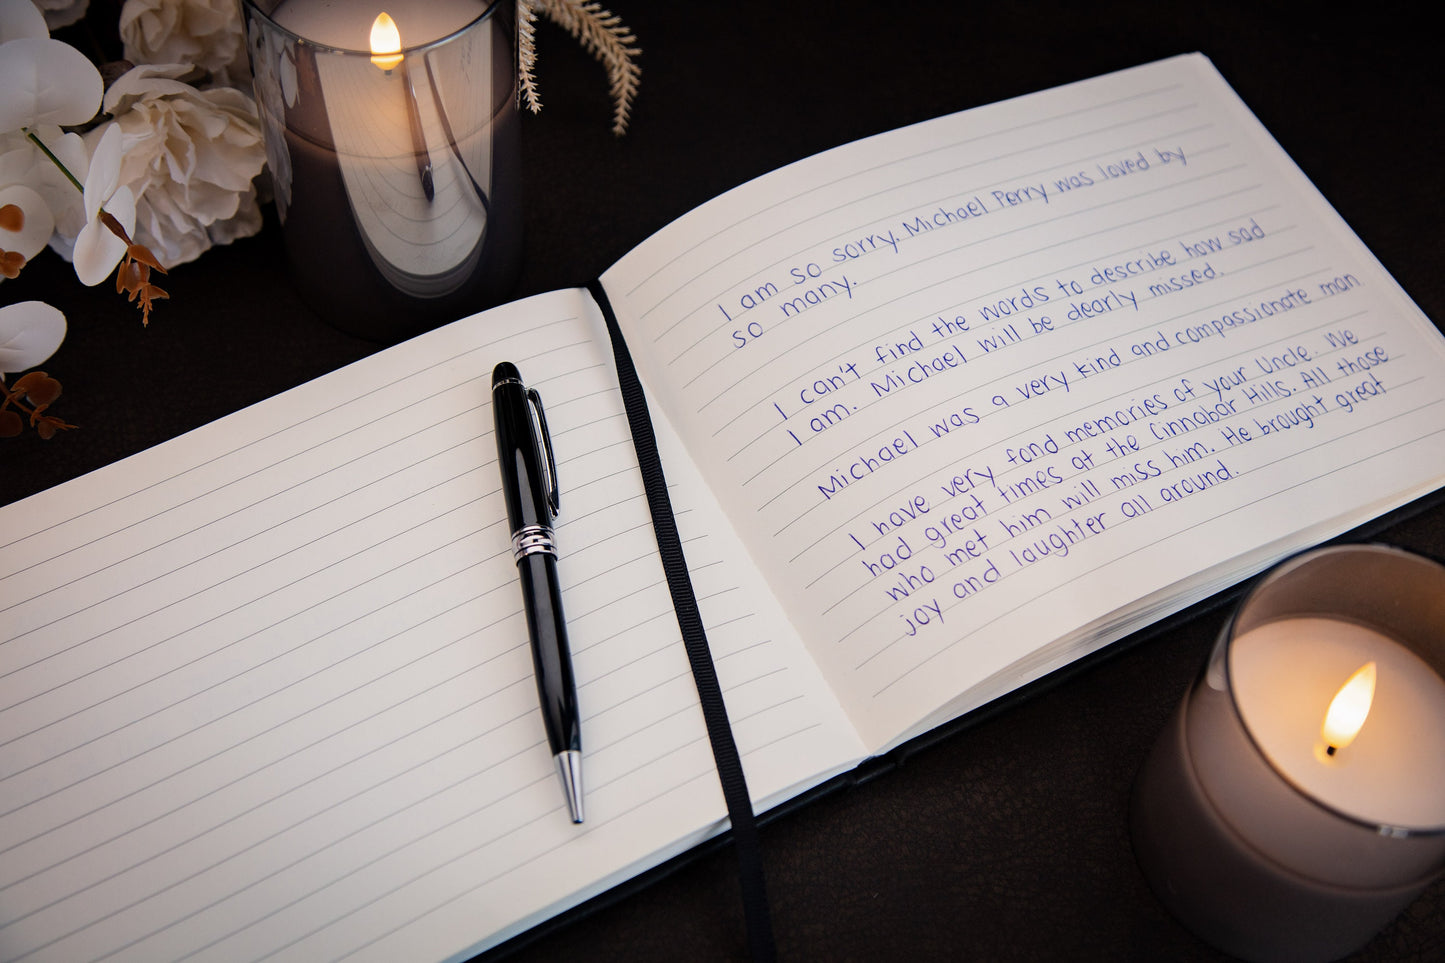 I am so sorry. Michael Perry was loved by
so many.
I can't find the words to describe how sad
I am. Michael will be dearly missed.
Michael was a very kind and compassionate man.
I have very fond memories of your Uncle. We
had great times at the Cinnabar Hills. All those
who met him will miss him. He brought great
joy and laughter all around.